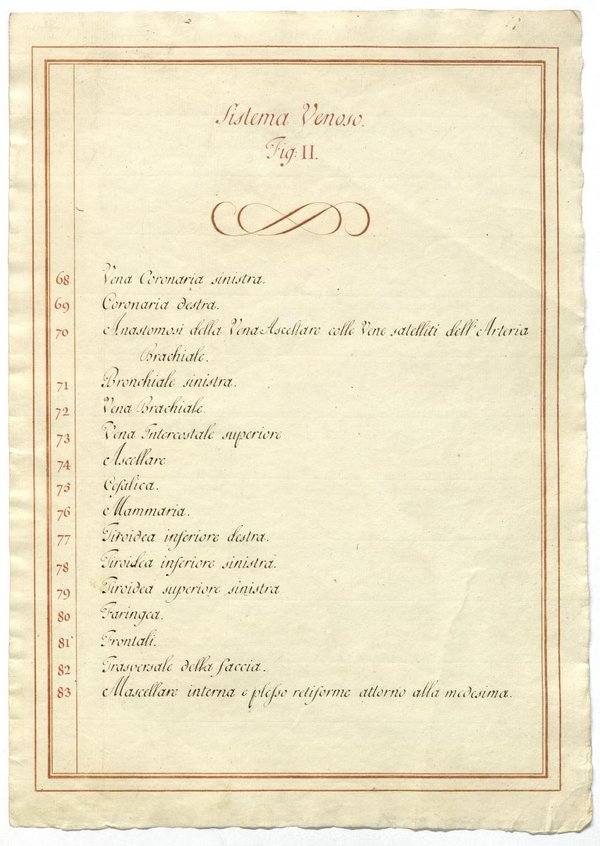 Sistema Venoso.
Fig: II.
68 Vena Coronaria sinistra.
69 Coronaria destra.
70 Anastomosi della Vena Ascellare colle Vene satelliti dell'Arteria
Brachiale.
71 Bronchiale sinistra.
72 Vena Brachiale.
73 Vena Intercostale superiore
74 Ascellare
75 Cefalica.
76 Mammaria.
77 Tiroidea inferiore destra.
78 Tiroidea inferiore sinistra.
79 Tiroidea superiore sinistra
80 Faringea.
81 Frontali.
82 Trasversale della faccia.
83 Mascellare interna e plesso retiforme attorno alla medesima.